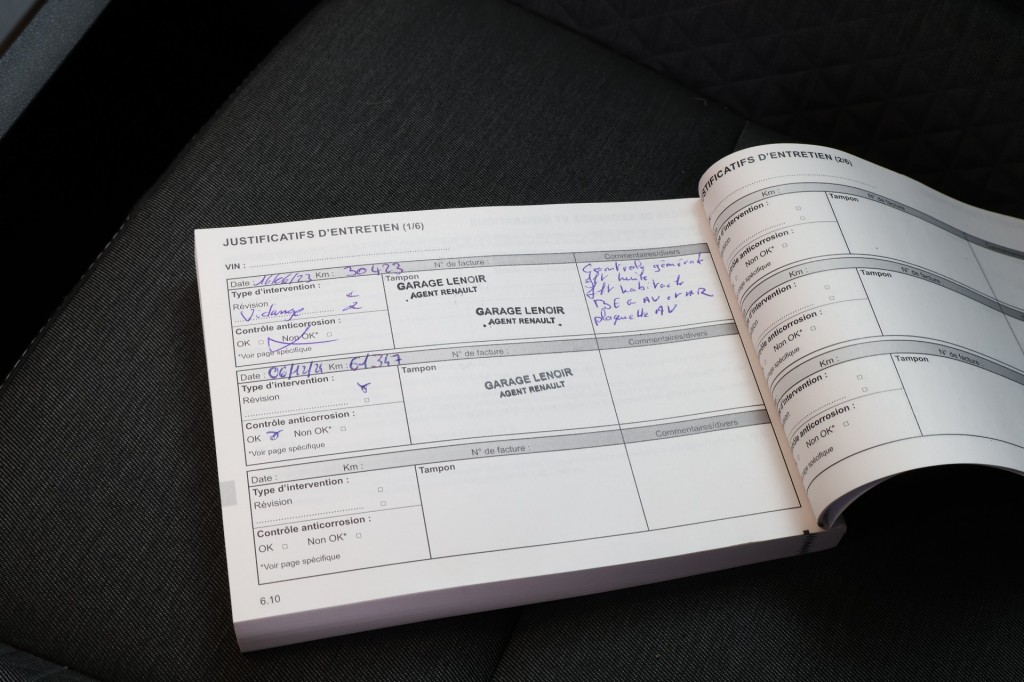 JUSTIFICATIFS D'ENTRETIEN (1/6)
VIN :
Date : 16/06/23 Km : 30423 N° de facture : Commentaires/divers
Type d'intervention : Tampon
Révision
Vidange
GARAGE LENOIR
AGENT RENAULT
GARAGE LENOIR
AGENT RENAULT
Controle
huile
AV
plaquette AV
Contrôle anticorrosion :
OK Non OK*
*Voir page spécifique
Date : 06/12/ Km : 61.347 N° de facture : Commentaires/divers
Type d'intervention : Tampon
Révision
GARAGE LENOIR
AGENT RENAULT
Contrôle anticorrosion :
OK Non OK*
*Voir page spécifique
Date : Km : N° de facture : Commentaires/divers
Type d'intervention : Tampon
Révision
Contrôle anticorrosion :
OK Non OK*
*Voir page spécifique
6.10
JUSTIFICATIFS D'ENTRETIEN (2/6)
Km : N° de facture
d'intervention : Tampon
anticorrosion :
Non OK*
spécifique
Km : N° de facture
d'intervention : Tampon
anticorrosion :
Non OK*
spécifique
Km : N° de facture
d'intervention : Tampon
anticorrosion :
Non OK*
spécifique